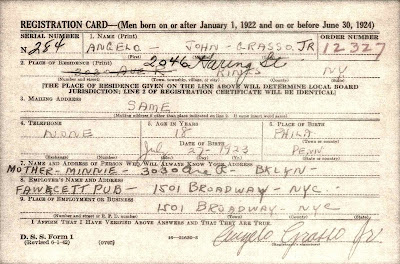 REGISTRATION CARD—(Men born on or after January 1, 1922 and on or before June 30, 1924)
SERIAL NUMBER 1. NAME (Print) ORDER NUMBER
N 284 ANGELO - JOHN - GRASSO, JR 12327
2046 Haring St
2. PLACE OF RESIDENCE (Print)
3030 AVE R KINGS NY
(Number and street) (Town, township, village, or city) (County) (State)
[THE PLACE OF RESIDENCE GIVEN ON THE LINE ABOVE WILL DETERMINE LOCAL BOARD
JURISDICTION; LINE 2 OF REGISTRATION CERTIFICATE WILL BE IDENTICAL]
3. MAILING ADDRESS
SAME
(Mailing address if other than place indicated on line 2. If same insert word same)
4. TELEPHONE 5. AGE IN YEARS 6. PLACE OF BIRTH
NONE 18 PHILA
DATE OF BIRTH (Town or county)
July 27-1923 PENN
(Exchange) (Number) (Mo.) (Day) (Yr.) (State or country)
7. NAME AND ADDRESS OF PERSON WHO WILL ALWAYS KNOW YOUR ADDRESS
MOTHER-MINNIE - 3030 AVE R - BKLYN -
8. EMPLOYER'S NAME AND ADDRESS
FAWCETT PUB - 1501 BROADWAY - NYC -
9. PLACE OF EMPLOYMENT OR BUSINESS
1501 BROADWAY - NYC
(Number and street or R. F. D. number) (Town) (County) (State)
I AFFIRM THAT I HAVE VERIFIED ABOVE ANSWERS AND THAT THEY ARE TRUE.
D. S. S. Form 1
(Revised 6-1-42) (over) Angelo Grasso Jr